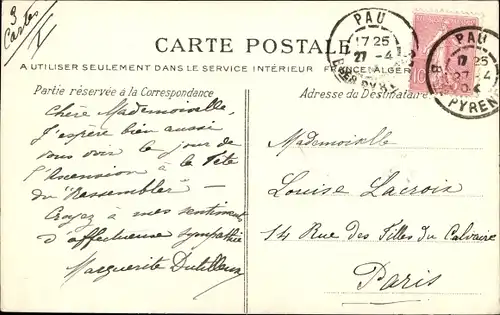 3
Cartes
PAU
17 25
27 -4
CARTE POSTALE
A UTILISER SEULEMENT DANS LE SERVICE INTÉRIEUR FRANCE ALGER
PAU
17 25
27 -4
04
PYREN
10
Partie réservée à la Correspondance
Adresse du Destinataire
Chère Mademoiselle,
J'espère bien aussi
vous voir le jour de
l'Ascension à la fête
du "Rassembler" —
Croyez à mes sentiments
d'affectueuse sympathie
Marguerite Dutilleux
Mademoiselle
Louise Lacroix
14 Rue des Filles du Calvaire
Paris